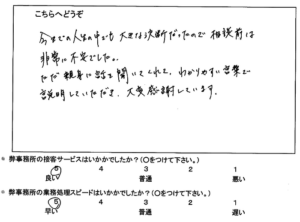 こちらへどうぞ
今までの人生の中でも大きな決断だったので相談前は
非常に不安でした。
ただ親身に話を聞いてくれて、わかりやすい言葉で
説明していただき、大変感謝しています。
* 弊事務所の接客サービスはいかがでしたか？（○をつけて下さい。）
5 4 3 2 1
良い 普通 悪い
* 弊事務所の業務処理スピードはいかがでしたか？（○をつけて下さい。）
5 4 3 2 1
早い 普通 遅い